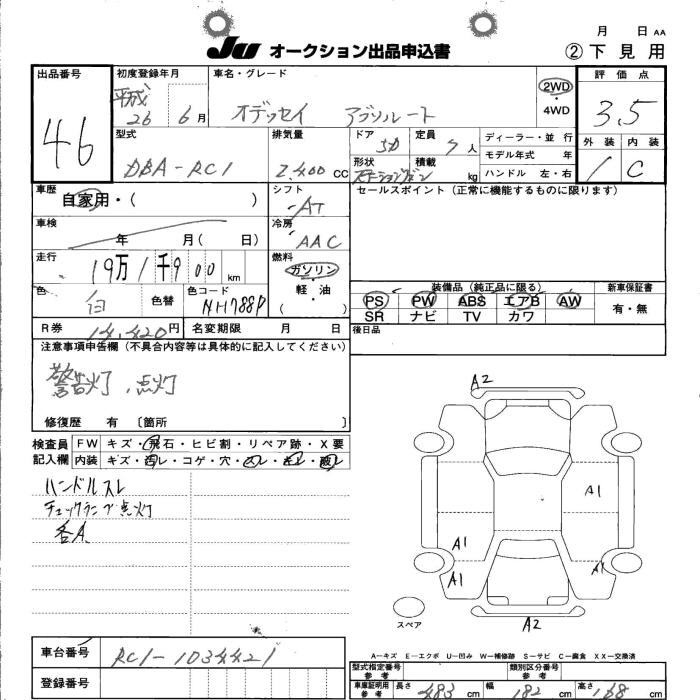 月 日 AA
JU オークション出品申込書
② 下見用
出品番号
46
初度登録年月
平成
26 6 月
車名・グレード
オデッセイ アブソルート
2WD
・
4WD
評価点
3.5
型式
DBA-RC1
排気量
2,400 CC
ドア
5D
定員
7 人
形状
ステーションワゴン
積載
kg
ディーラー・並 行
モデル年式 年
ハンドル 左・右
外装 内装
1 C
車歴
自家用・( )
シフト
AT
セールスポイント (正常に機能するものに限ります)
車検
年 月( 日)
冷房
AAC
走行
19万1千900 km
燃料
ガソリン
・
軽・油
( )
色
白
色替
色コード
NH788P
装備品 (純正品に限る)
PS PW ABS エアB AW
SR ナビ TV カワ
新車保証書
有・無
R券 14,420円
名変期限 月 日
後日品
注意事項申告欄 (不具合内容等は具体的に記入してください)
警告灯、点灯
修復歴 有 〔箇所 〕
検査員
記入欄
FW キズ・飛石・ヒビ割・リペア跡・X要
内装 キズ・汚レ・コゲ・穴・
ハンドルスレ
チェックランプ点灯
各A
A2
A1
A1
A1
A1
A2
スペア
A-キズ E-エクボ U-凹み W-補修跡 S-サビ C-腐食 XX-交換済
車台番号
RC1-1034421
登録番号
型式指定番号
参考
類別区分番号
参考
車庫証明用
参考
長さ 483 cm
幅 182 cm
高さ 168 cm